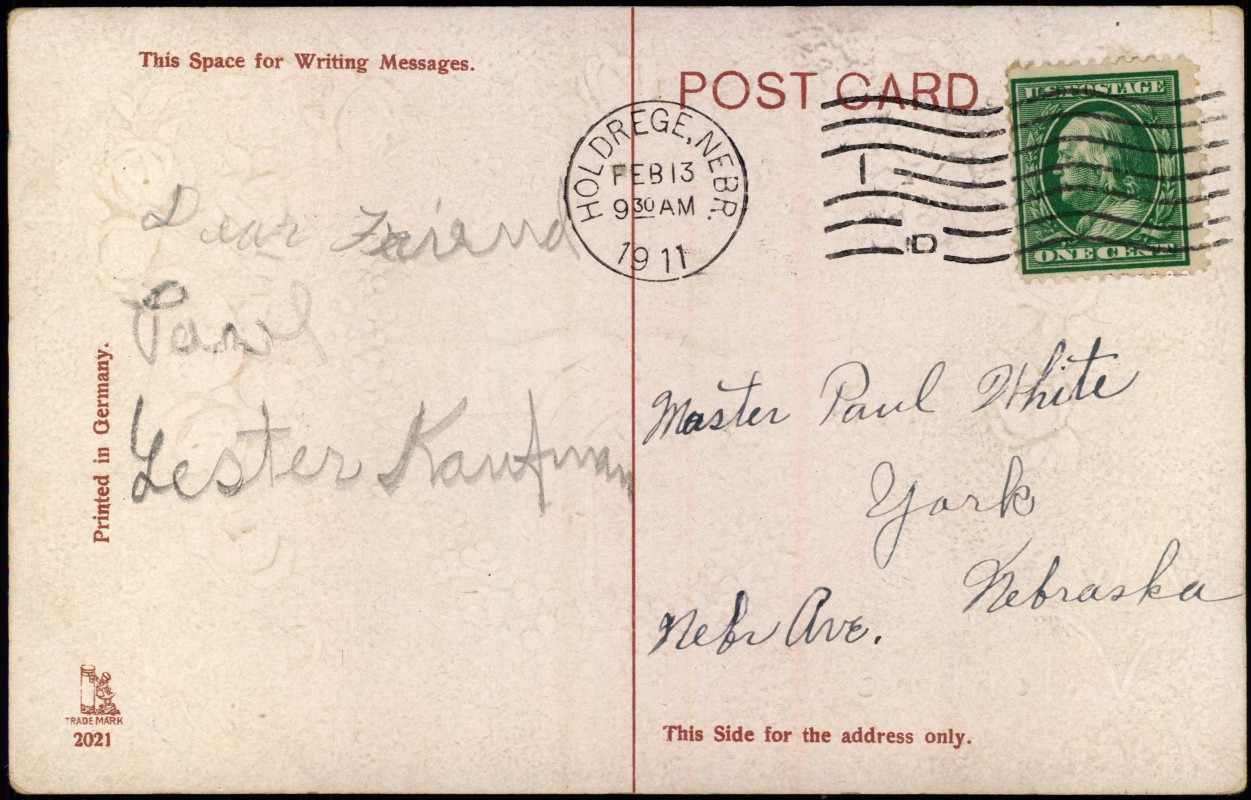 This Space for Writing Messages.
Dear Freiend
Paul
Lester Kaufman
Printed in Germany.
TRADE MARK
2021
POST CARD
HOLDREGE, NEBR.
FEB 13
9 30 AM
1911
1
D
U.S. POSTAGE
ONE CENT
Master Paul White
York
Nebraska
Nebr Ave.
This Side for the address only.